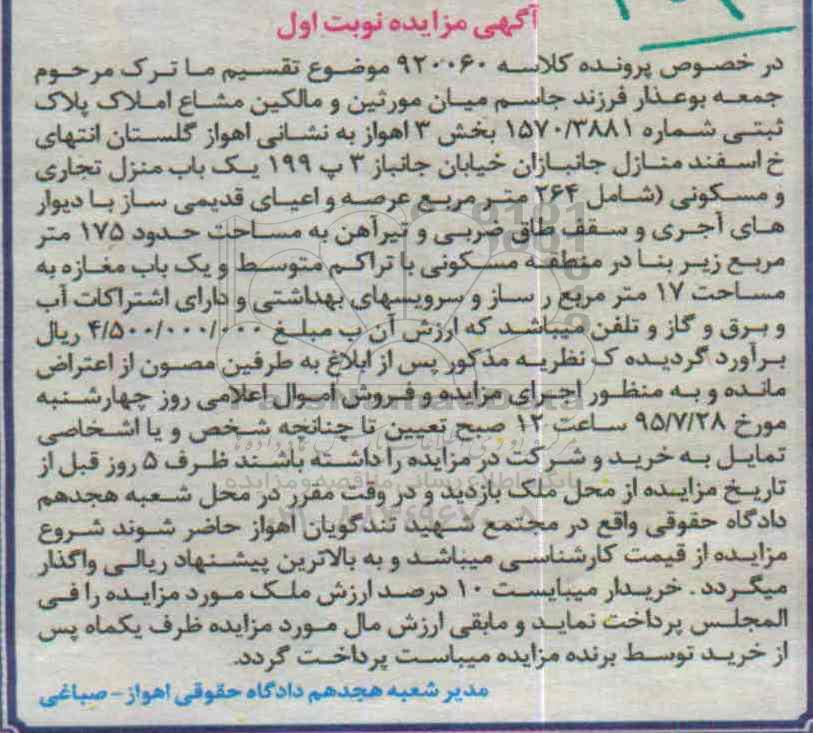 آگهی مزایده نوبت اول
در خصوص پرونده کلاسه ۹۲۰۰۶۰ موضوع تقسیم ما ترک مرحوم
جمعه بوعذار فرزند جاسم میان مورثین و مالکین مشاع املاک پلاک
ثبتی شماره ۱۵۷۰/۳۸۸۱ بخش ۳ اهواز به نشانی اهواز گلستان انتهای
خ اسفند منازل جانبازان خیابان جانباز ۳ پ ۱۹۹ یک باب منزل تجاری
و مسکونی (شامل ۲۶۴ متر مربع عرصه و اعیای قدیمی ساز با دیوار
های آجری و سقف طاق ضربی و تیرآهن به مساحت حدود ۱۷۵ متر
مربع زیر بنا در منطقه مسکونی با تراکم متوسط و یک باب مغازه به
مساحت ۱۷ متر مربع ر ساز و سرویسهای بهداشتی و دارای اشتراکات آب
و برق و گاز و تلفن میباشد که ارزش آن ب مبلغ ۴/۵۰۰/۰۰۰/۰۰۰ ریال
برآورد گردیده ک نظریه مذکور پس از ابلاغ به طرفین مصون از اعتراض
مانده و به منظور اجرای مزایده و فروش اموال اعلامی روز چهارشنبه
مورخ ۹۵/۷/۲۸ ساعت ۱۲ صبح تعیین تا چنانچه شخص و یا اشخاصی
تمایل به خرید و شرکت در مزایده را داشته باشند ظرف ۵ روز قبل از
تاریخ مزایده از محل ملک بازدید و در وقت مقرر در محل شعبه هجدهم
دادگاه حقوقی واقع در مجتمع شهید تندگویان اهواز حاضر شوند شروع
مزایده از قیمت کارشناسی میباشد و به بالاترین پیشنهاد ریالی واگذار
میگردد. خریدار میبایست ۱۰ درصد ارزش ملک مورد مزایده را فی
المجلس پرداخت نماید و مابقی ارزش مال مورد مزایده ظرف یکماه پس
از خرید توسط برنده مزایده میباست پرداخت گردد.
مدیر شعبه هجدهم دادگاه حقوقی اهواز - صباغی